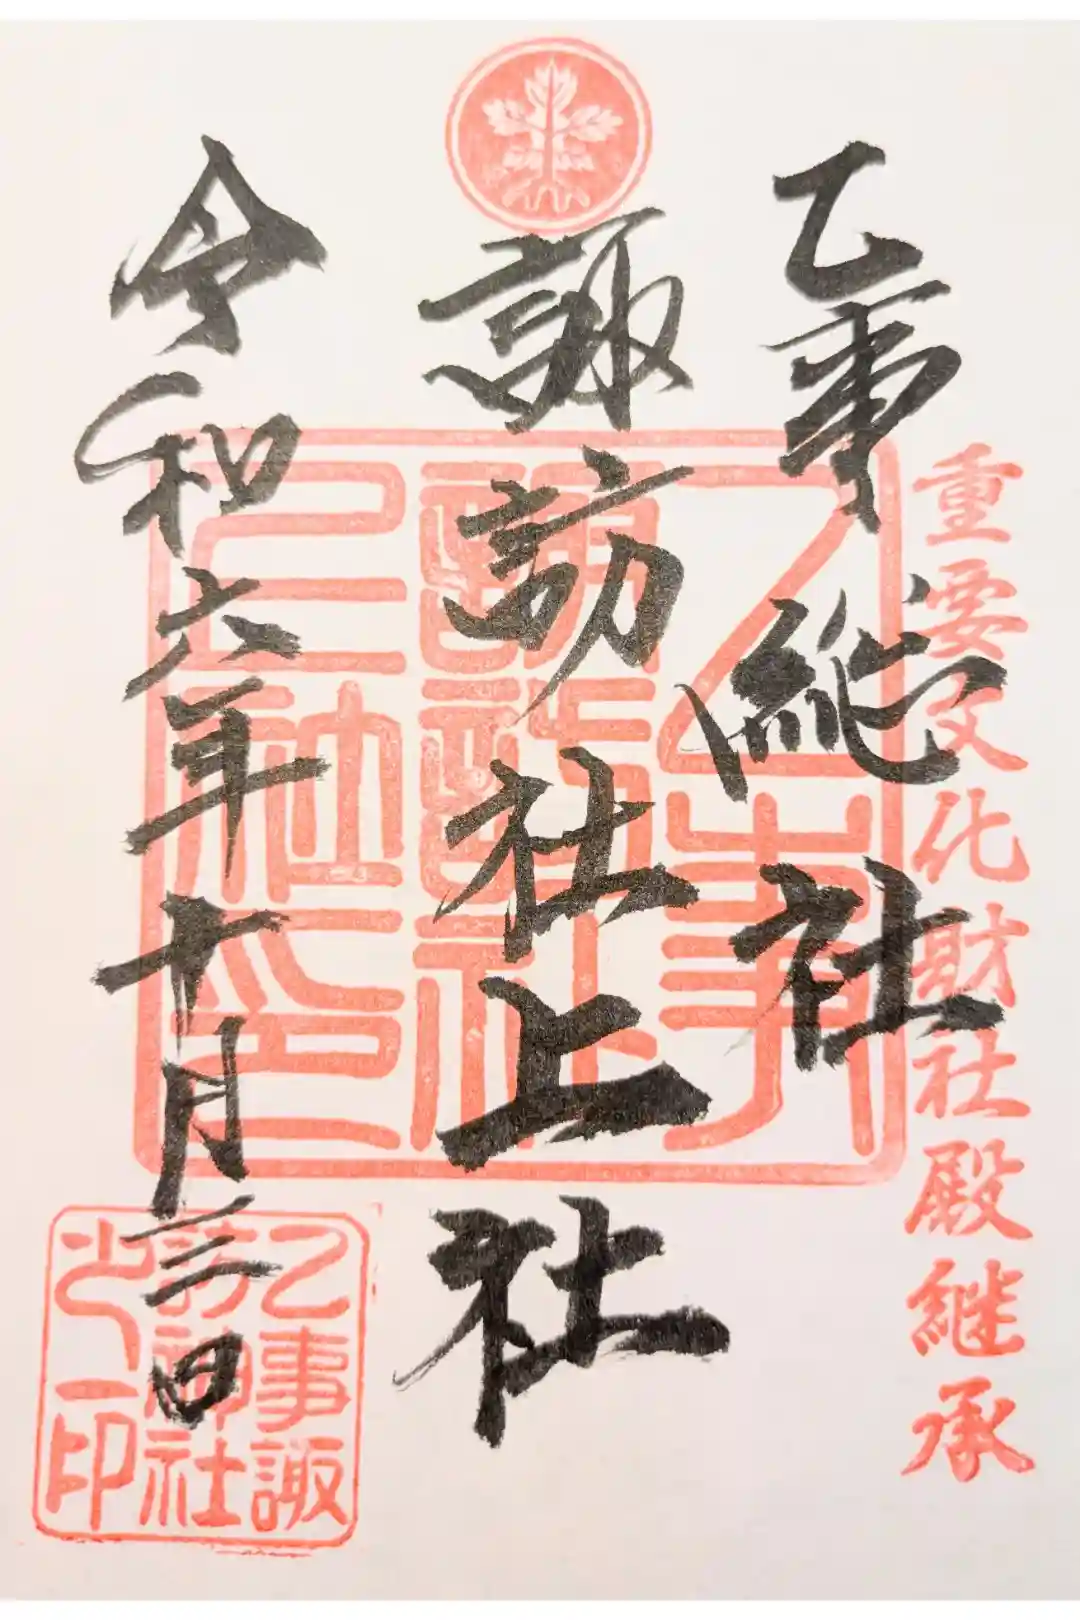 重要文化財社殿継承
乙事総社
諏訪社上社
令和六年十月三日
乙事
諏訪社
社印
乙事諏
訪神社
之印